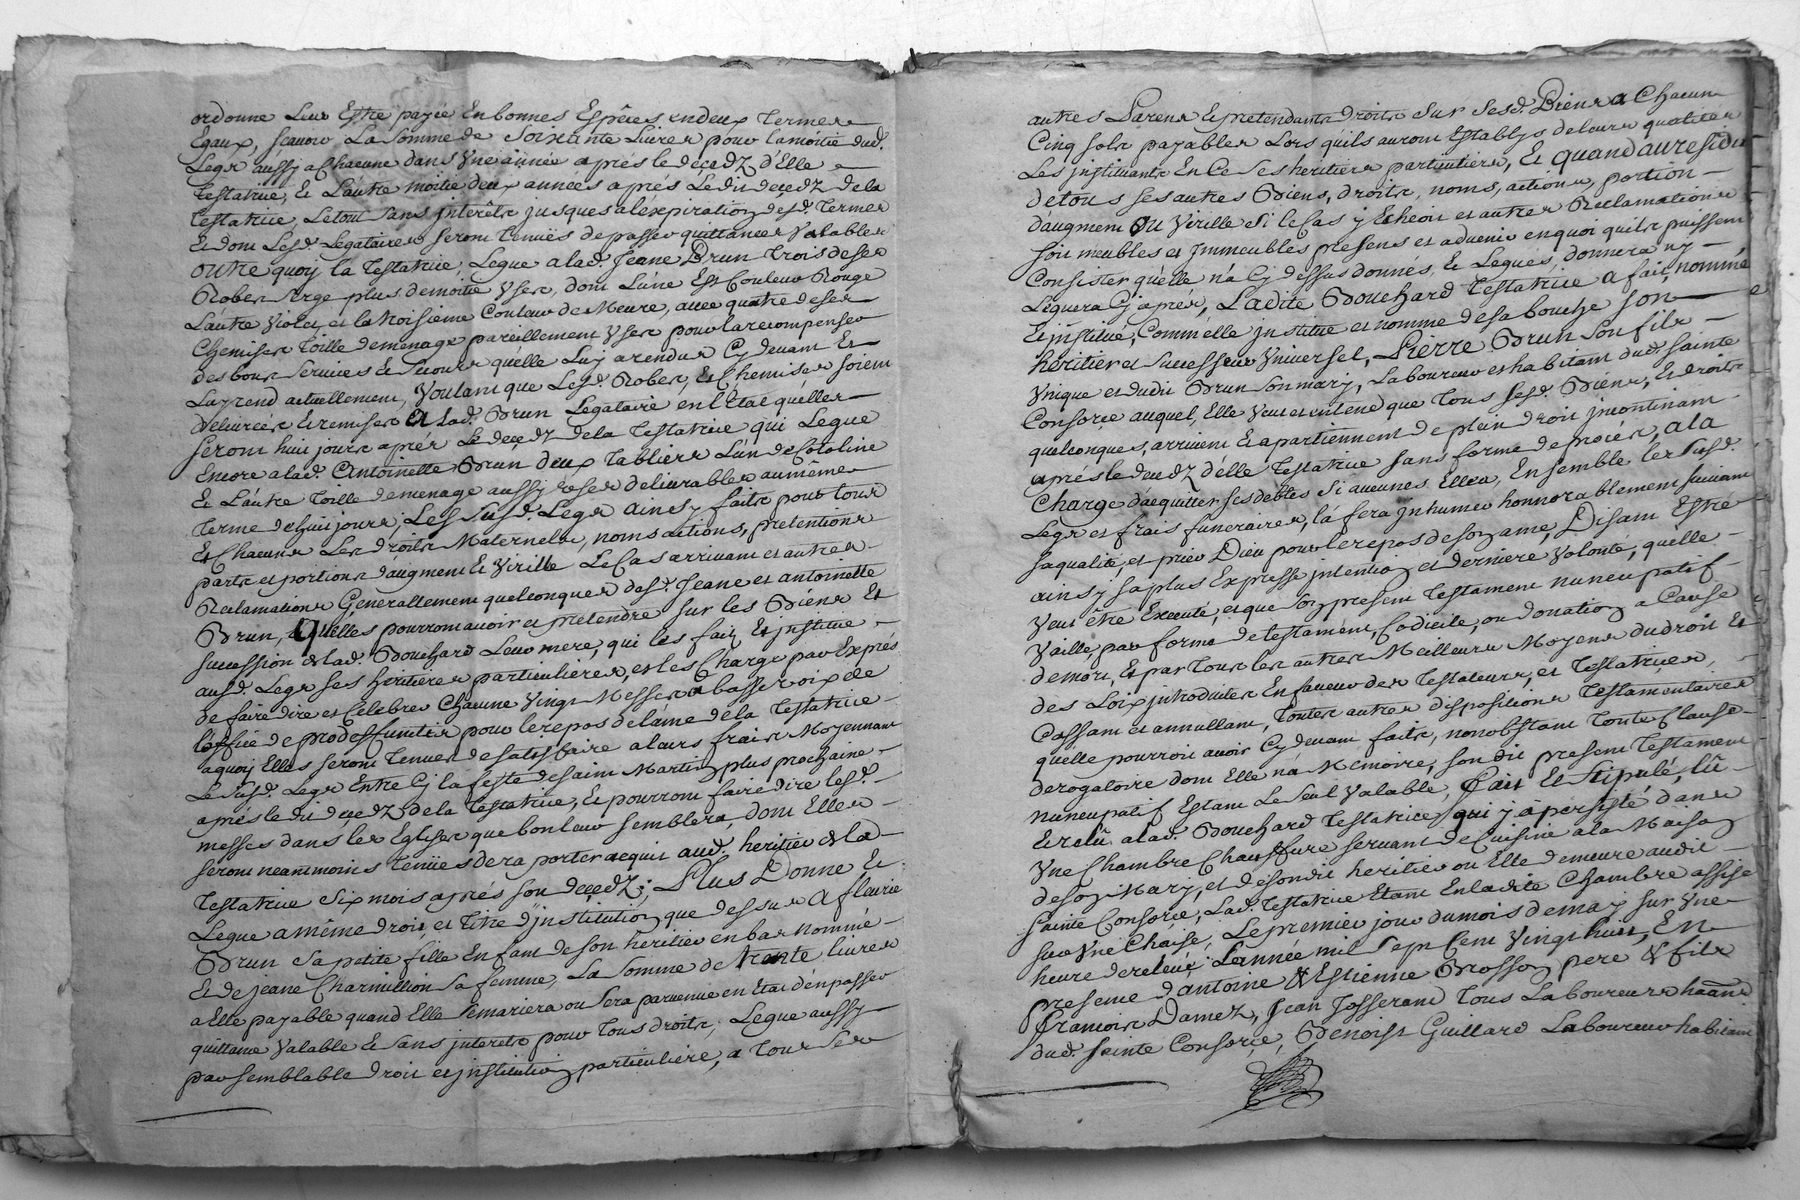 ordonne Leur Estre payée En bonnes Espéces en deux Termes
Egaux, Scavoir La Somme de Soixante Livres pour la moitie dud.
Legs aussy a Chacune dans Une année aprés le decedz d'Elle
Testatrice, Et L'autre moitie deux années aprés Le dit decedz de la
Testatrice, Le tout sans interêts jusques a l'éxpiration desd. Termes
Et dont Lesd. Legataires seront Tenuës de passer quittances Valables
outre quoy la Testatrice, Legue a lad. Jeane Brun trois de ses
Robes Serge plus de moitié Usés, dont L'une Est Couleur Rouge
L'autre Violet, et la troisiéme Couleur de Meure, avec quatre de ses
Chemises Toille de menage pareillement Usés pour la recompenser
des bons services et Secours qu'elle Luy a rendus Cy devant Et
Luy rend actuellement, Voulant que Lesd. Robes, Et Chemises soient
delivrées Et remises A Lad. Brun Legataire en l'Etat qu'elles
seront huit jours aprés Le decedz de la Testatrice qui Legue
Encore a lad. Antoinette Brun deux Tabliers L'un de Cotoline
Et L'autre Toille de menage aussy usés delivrables au même
Terme de huit jours; Les susd. Legs ainsy faits pour tous
Et Chacuns Les droits Maternels, noms actions, pretentions
parts et portions d'augment Et Virille Le Cas arrivant et autres
Reclamations Generallement quelconques desd. Jeane et antoinette
Brun, qu'elles pourront avoir et pretendre sur les Biens Et
succession de lad. Bouchard Leur mere, qui les fait, Et institue
ausd. Legs ses heritieres particulieres, et les Charge par Exprés
de faire dire et Celebrer Chacune Vingt Messes a basse voix de
l'office de prodeffunctis pour le repos de l'ame de la Testatrice
a quoy Elles seront Tenues de satisfaire a leurs frais Moyennant
Le susd. Legs Entre Cy la feste de saint Martin plus prochaine
aprés le dit decedz de la Testatrice, Et pourront faire dire lesd.
messes dans les Eglises que bon leur semblera, dont Elles
seront neantmoins Tenües de raporter acquit aud. heritier de la
Testatrice Six mois aprés son decedz; Plus Donne Et
Legue a même droit et titre d'institution que dessus A fleurie
Brun sa petite fille Enfant de son heritier en bas nommé
Et de jeane Charmillion sa femme, La Somme de trente livres
a Elle payable quand Elle se mariera ou sera parvenue en Etat d'en passer
quittance Valable Et sans interets pour Tous droits; Legue aussy
par semblable droit et institution particuliere, a Tous ses
autres Parens Et pretendants droits sur sesd. Biens a Chacun
Cinq sols payables Lors qu'ils auront Establys de leurs qualités
Les instituants En Ce ses heritiers particuliers, Et quand au residu
de tous ses autres Biens, droits, noms, actions, portion
d'augment ou Virille si le Cas y Echeoit et autres Reclamations
soit meubles et Immeubles presens et advenir en quoi qu'ils puissent
Consister qu'elle n'a Cy dessus donnés, Et Legués, donnera ny
Leguera Cy aprés, Ladite Bouchard Testatrice a fait, nommé,
Et institué, Comme elle Institue et nomme de sa bouche son
heritier et Successeur Universel, Pierre Brun son fils
Unique et dudit Brun son mary, Laboureur et habitant dud. Sainte
Consorce auquel, Elle Veut et entend que Tous sesd. Biens, Et droits
quelconques, arrivent Et apartiennent de plein droit incontinant
aprés le decedz d'elle Testatrice sans forme de procés, a la
Charge d'acquitter ses debtes si aucunes Elle a, Ensemble les susd.
Legs et frais funeraires, la fera Inhumer honnorablement suivant
sa qualité, et prier Dieu pour le repos de son ame, Disant Estre
ainsy sa plus Expresse intention et derniere Volonté, qu'elle
Veut être Executé, et que son present Testament nuncupatif
Vaille, par forme de testament, Codicile, ou donation a Cause
de mort, Et par Tous les autres Meilleurs Moyens du droit Et
des Loix introduites En faveur des Testateurs, et Testatrices,
Cassant et annullant, Toutes autres dispositions Testamentaires
qu'elle pourroit avoir Cy devant faites, nonobstant Toute Clause
derogatoire dont Elle n'a Memoire, son dit present Testament
nuncupatif Estant Le seul Valable, fait Et Stipulé, lû
Et relû a lad. Bouchard Testatrice, qui y a persisté dans
Une Chambre Chauffure servant de Cuisine a la Maison
de son Mary, et de son dit heritier ou Elle demeure audit
Sainte Consorce, Lad. Testatrice Etant En ladite Chambre assise
sur Une Chaise, Le premier jour du mois de may sur Une
heure de relevée L'année mil Sept Cent Vingt huit, En
presence d'antoine & Estienne Brosson pere & fils
francois Damez, Jean Josserand Tous Laboureurs
dud. Sainte Consorce, Benoist Guillard Laboureur habitant